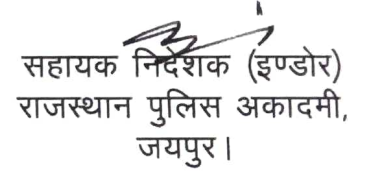 सहायक निर्देशक (इण्डोर)
राजस्थान पुलिस अकादमी,
जयपुर।